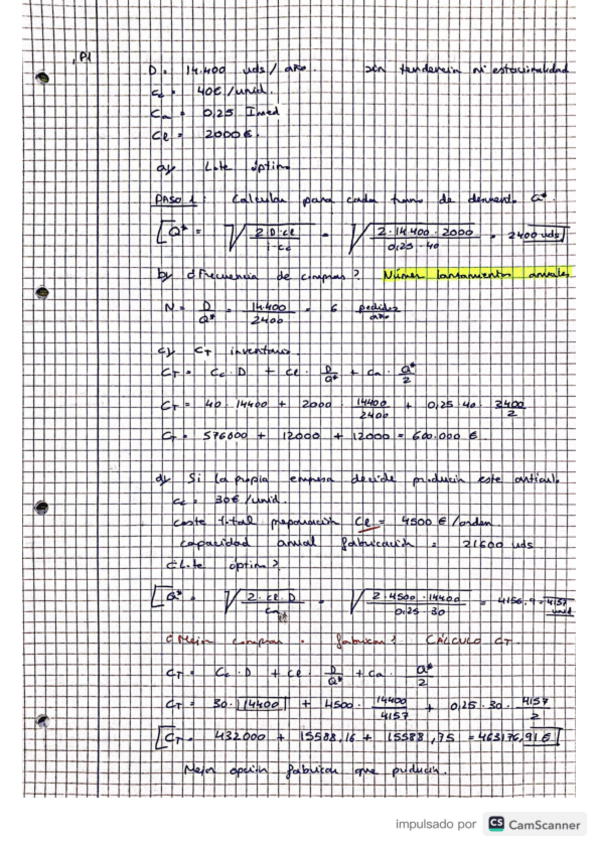 , P1
D = 14.400 uds/año. sin tendencia ni estacionalidad
Cc = 40€/unid.
Ca = 0,25 Imed
Cl = 2000€.
a) Lote óptimo
PASO 1: Calcular para cada tramo de Q*.
[Q* = √(2·D·Cl / i·Cc) = √(2·14.400·2000 / 0,25·40) = 2400 uds]
b) ¿Frecuencia de compras? Número lanzamientos anuales
N = D/Q* = 14.400/2400 = 6 pedidos/año
c) CT inventario.
CT = Cc·D + Cl · D/Q* + Ca · Q*/2
CT = 40·14400 + 2000 · 14400/2400 + 0,25·40 · 2400/2
CT = 576000 + 12000 + 12000 = 600.000 €
d) Si la propia empresa decide producir este artículo
Cc = 30€/unid.
Coste total preparación Cl = 4500 €/orden
capacidad anual fabricación = 21600 uds
¿Lote óptimo?
[Q* = √(2·Cl·D / Ca) = √(2·4500·14400 / 0,25·30) = 4156,9 = 4157 unid]
¿Mejor comprar o fabricar? CÁLCULO CT.
CT = Cc·D + Cl · D/Q* + Ca · Q*/2
CT = 30·14400 + 4500 · 14400/4157 + 0,25·30 · 4157/2
[CT = 432000 + 15588,16 + 15588,75 = 463176,91€]
Mejor opción fabricar que producir.
impulsado por CS CamScanner